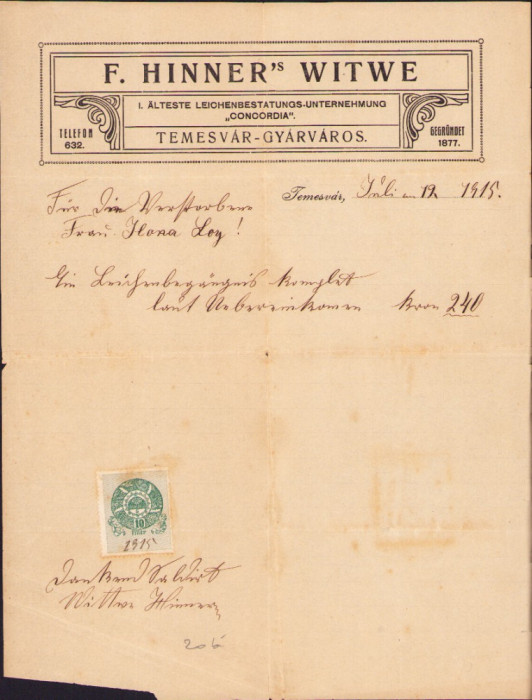 F. HINNER's WITWE
I. ÄLTESTE LEICHENBESTATUNGS-UNTERNEHMUNG
„CONCORDIA".
TELEFON
632.
GEGRÜNDET
1877.
TEMESVÁR-GYÁRVÁROS.
Temesvár, Juli 19. 1915.
Für die Verstorbene
Frau Ilona Loy!
Ein Leichenbegängnis komplet
laut Uebereinkomen Kron 240
10
1915
Dankend Saldirt
Wittwe Hinner
206